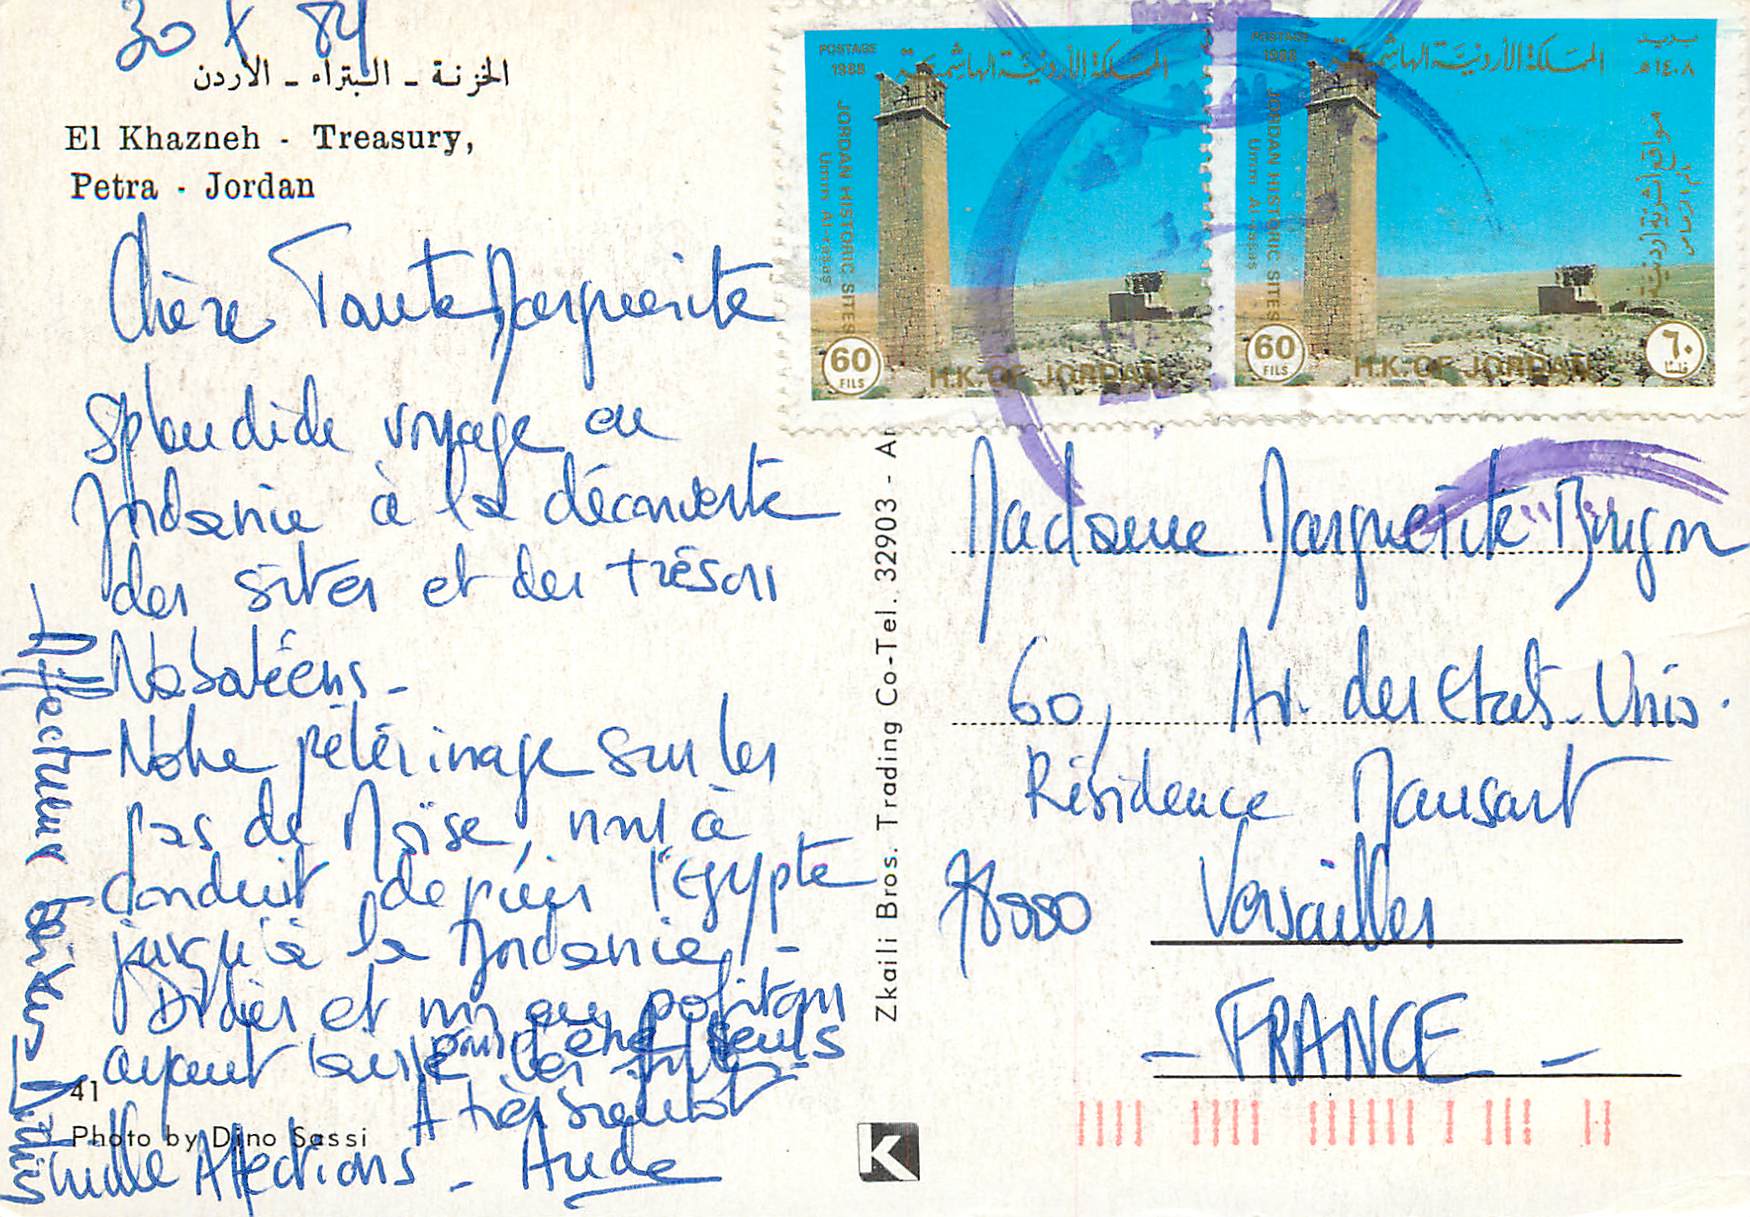 30 X 89
الخزنة ـ البتراء ـ الأردن
El Khazneh - Treasury,
Petra - Jordan
Chère Tante Marguerite
Splendide voyage en
Jordanie à la découverte
des sites et des trésors
Nabatéens -
Notre pèlérinage sur les
pas de Moïse, nous à
conduit depuis l'Egypte
jusqu'à la Jordanie, -
Didier et moi en profitons
pour être seuls
ayant laissé les filles -
A très bientôt
mille Affections - Aude
Affectueux baisers Didier
41
Photo by Dino Sassi
Zkaili Bros. Trading Co-Tel. 32903 - Am
POSTAGE
1988
المملكة الأردنية الهاشمية
JORDAN HISTORIC SITES
Umm Al-rasas
60
FILS
H.K. OF JORDAN
POSTAGE
1988
المملكة الأردنية الهاشمية
بريد
١٤٠٨هـ
JORDAN HISTORIC SITES
Umm Al-rasas
مواقع أثرية أردنية
أم الرصاص
60
FILS
H.K. OF JORDAN
٦٠
فلسا
Madame Marguerite
60, Av. des Etats-Unis.
Résidence Mansart
78000 Versailles
- FRANCE -
K